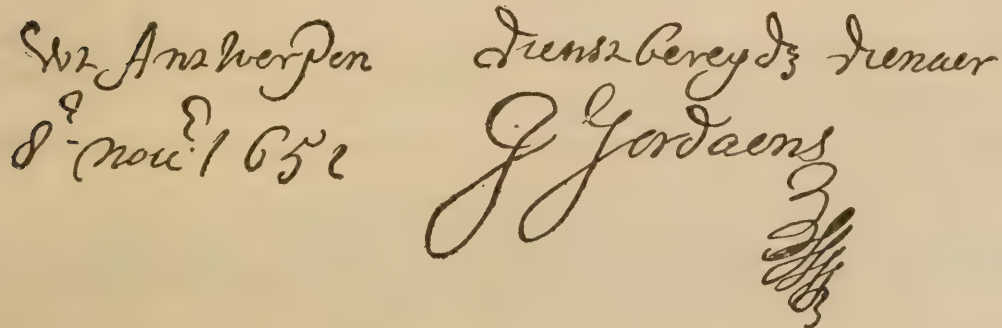 Wt Antwerpen
8e nove 1651
dienst bereydt dienaer
J Jordaens